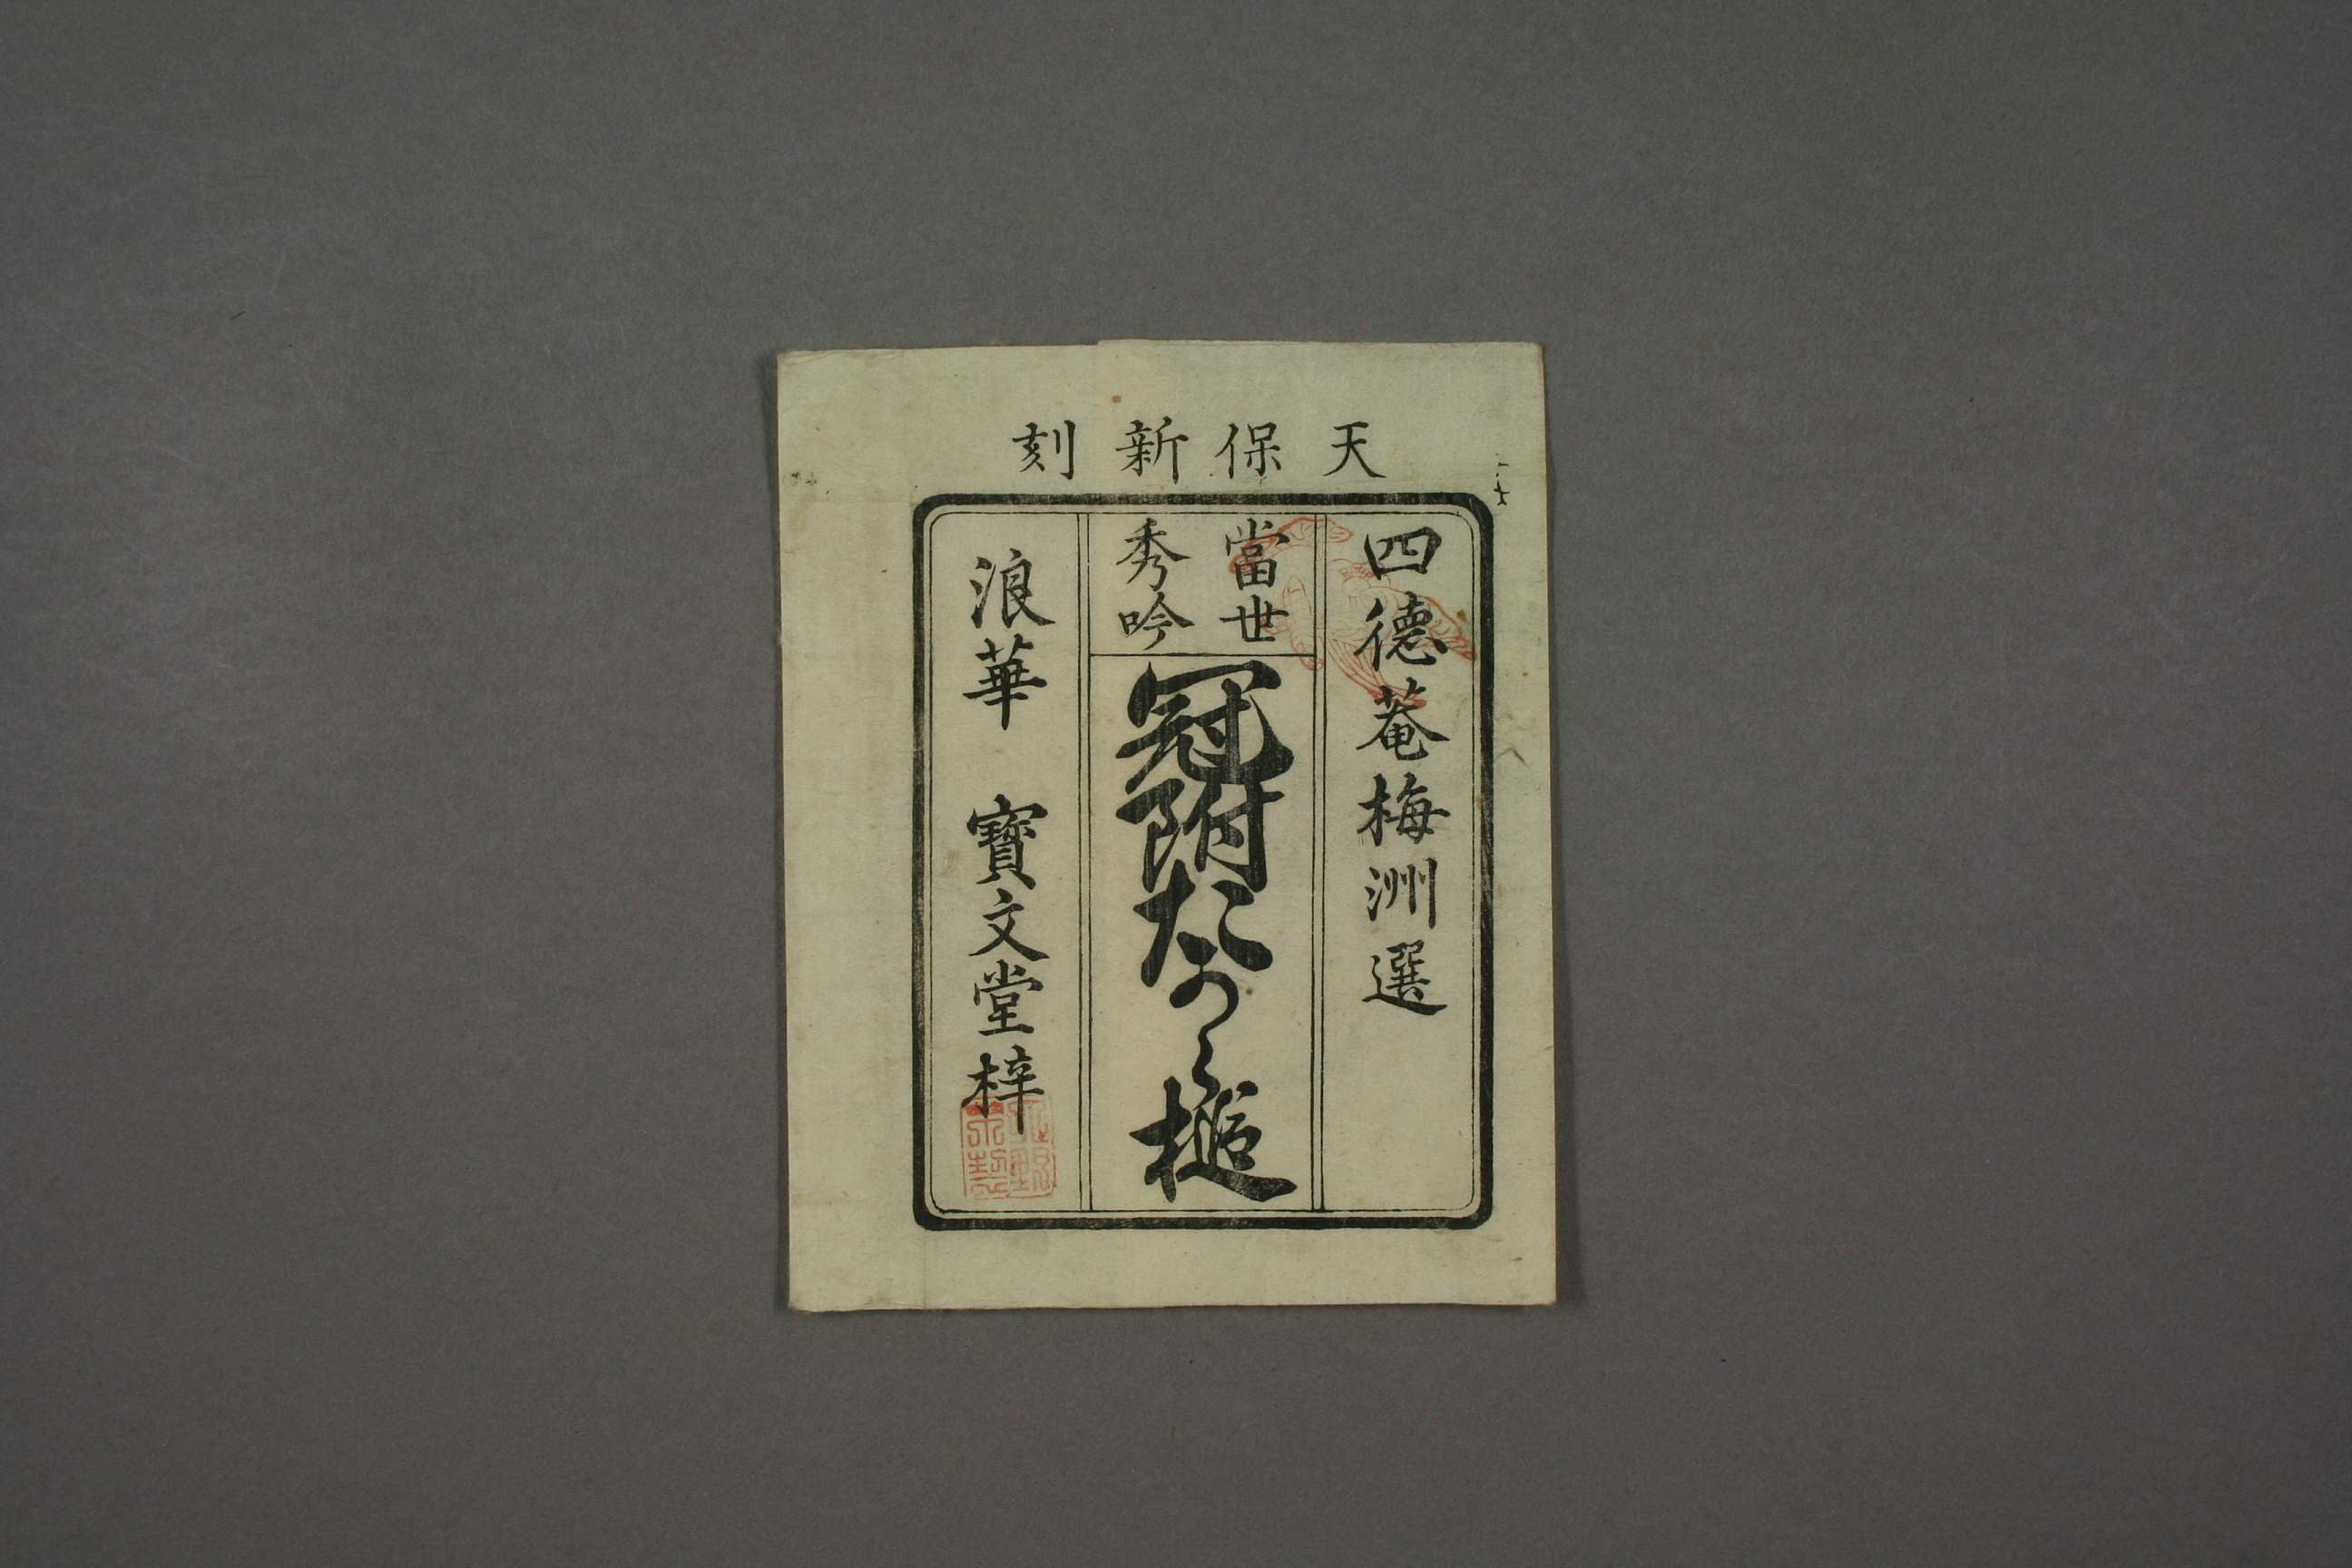 天保新刻
四德菴梅洲選
當世
秀吟
冠附たから槌
浪華 寶文堂梓